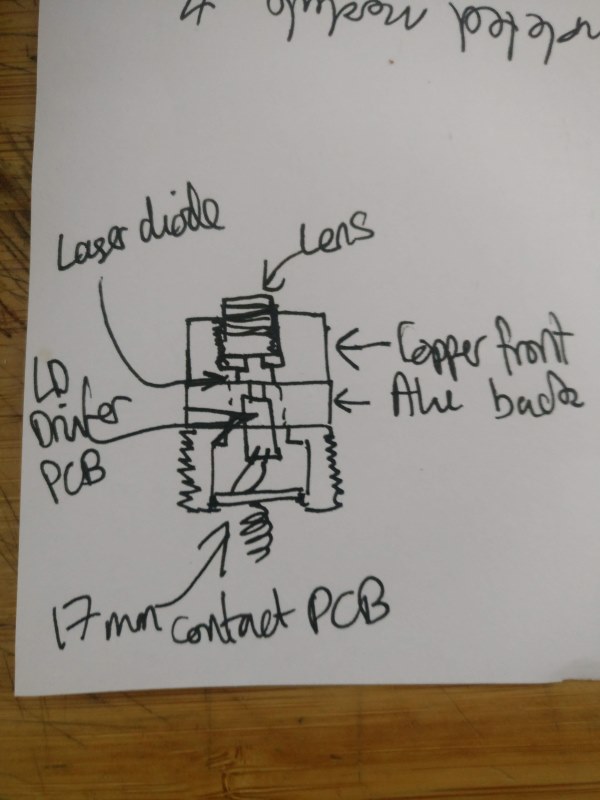 Laser diode
Lens
Copper front
Alu back
LD
Driver
PCB
17mm contact PCB